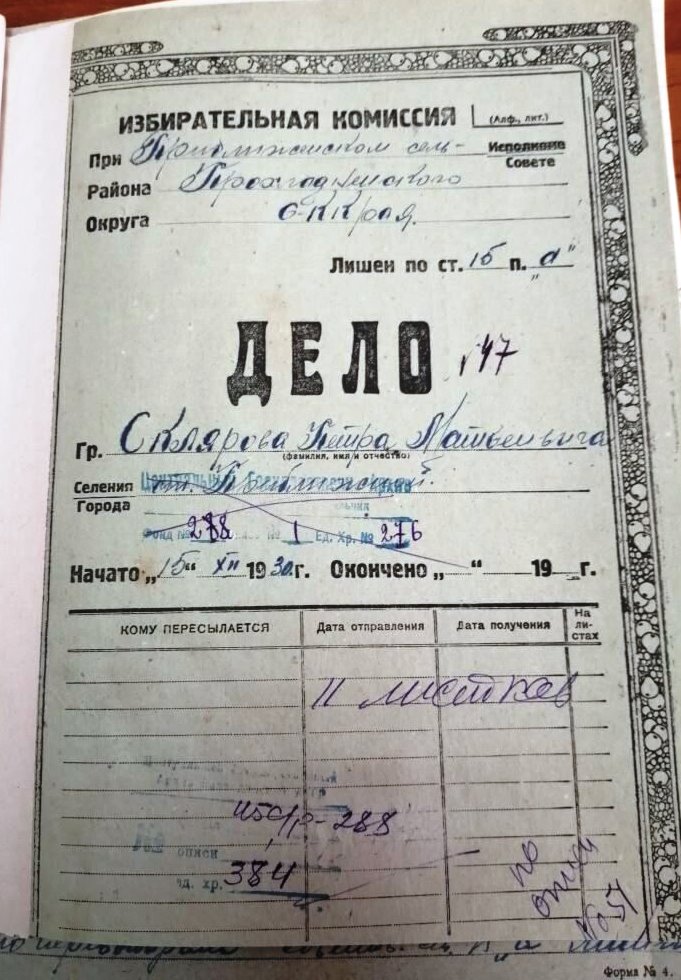 ИЗБИРАТЕЛЬНАЯ КОМИССИЯ
(Алф., лит.)
При Приближенском сель- Исполкоме
Совете
Района Прохладненского
Округа С-К Края.
Лишен по ст. 15 п. „а“
ДЕЛО 47
Гр. Склярова Петра Матвеевича
(фамилия, имя и отчество)
Селения ст. Приближской.
Города
Фонд № 288 1 Ед. Хр. № 276
Начато „15“ XII 1930г. Окончено „ “ 19 г.
КОМУ ПЕРЕСЫЛАЕТСЯ Дата отправления Дата получения На листах
11 листков
р-288
описи
ед. хр. 384
по описи
№ 54
Форма № 4.